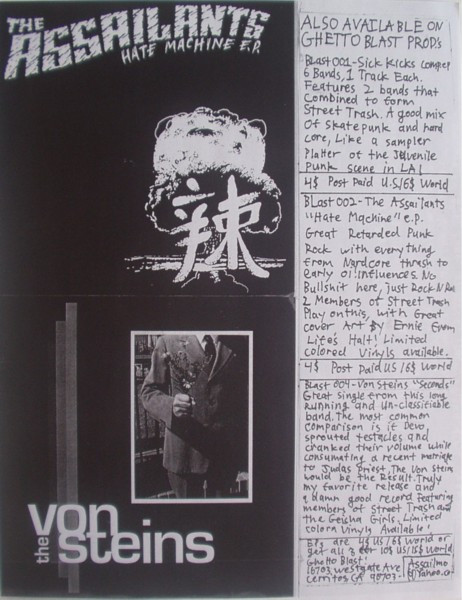 THE
ASSAILANTS
HATE MACHINE E.P.
辣
the
von
steins
ALSO AVAILABLE ON
GHETTO BLAST PROD's
BLAST 001-Sick Kicks comp ep
6 Bands, 1 Track Each.
Features 2 bands that
Combined to form
Street Trash. A good mix
Of skatepunk and hard
core, Like a sampler
Platter of the Juvenile
Punk scene in LA!
4$ Post Paid U.S/6$ World
BLast 002-The Assailants
"Hate Machine" e.p.
Great Retarded Punk
Rock with everything
from Nardcore thrash to
early oi! influences. No
Bullshit here, just Rock N Roll
2 Members of Street Trash
Play on this, with Great
cover Art By Ernie from
Life's Halt! Limited
colored Vinyls available.
4$ Post Paid US/6$ World
Blast 004-Von Steins "Seconds"
Great single from this long
running and un-classifiable
band. The most common
comparison is if Devo,
sprouted testacles and
cranked their volume while
consumating a recent marriage
to Judas Priest. The Von Steins
would be the Result. Truly
my favorite release and
a damn good record featuring
members of Street Trash and
the Geisha Girls. Limited
colorn Vinyl Available!
EPs are 4$ US/6$ World or
get all 3 for 10$ US/15$ World
Ghetto Blast!
16703 Westgate Ave
Cerritos CA 90703-
Assailmo
@Yahoo.co